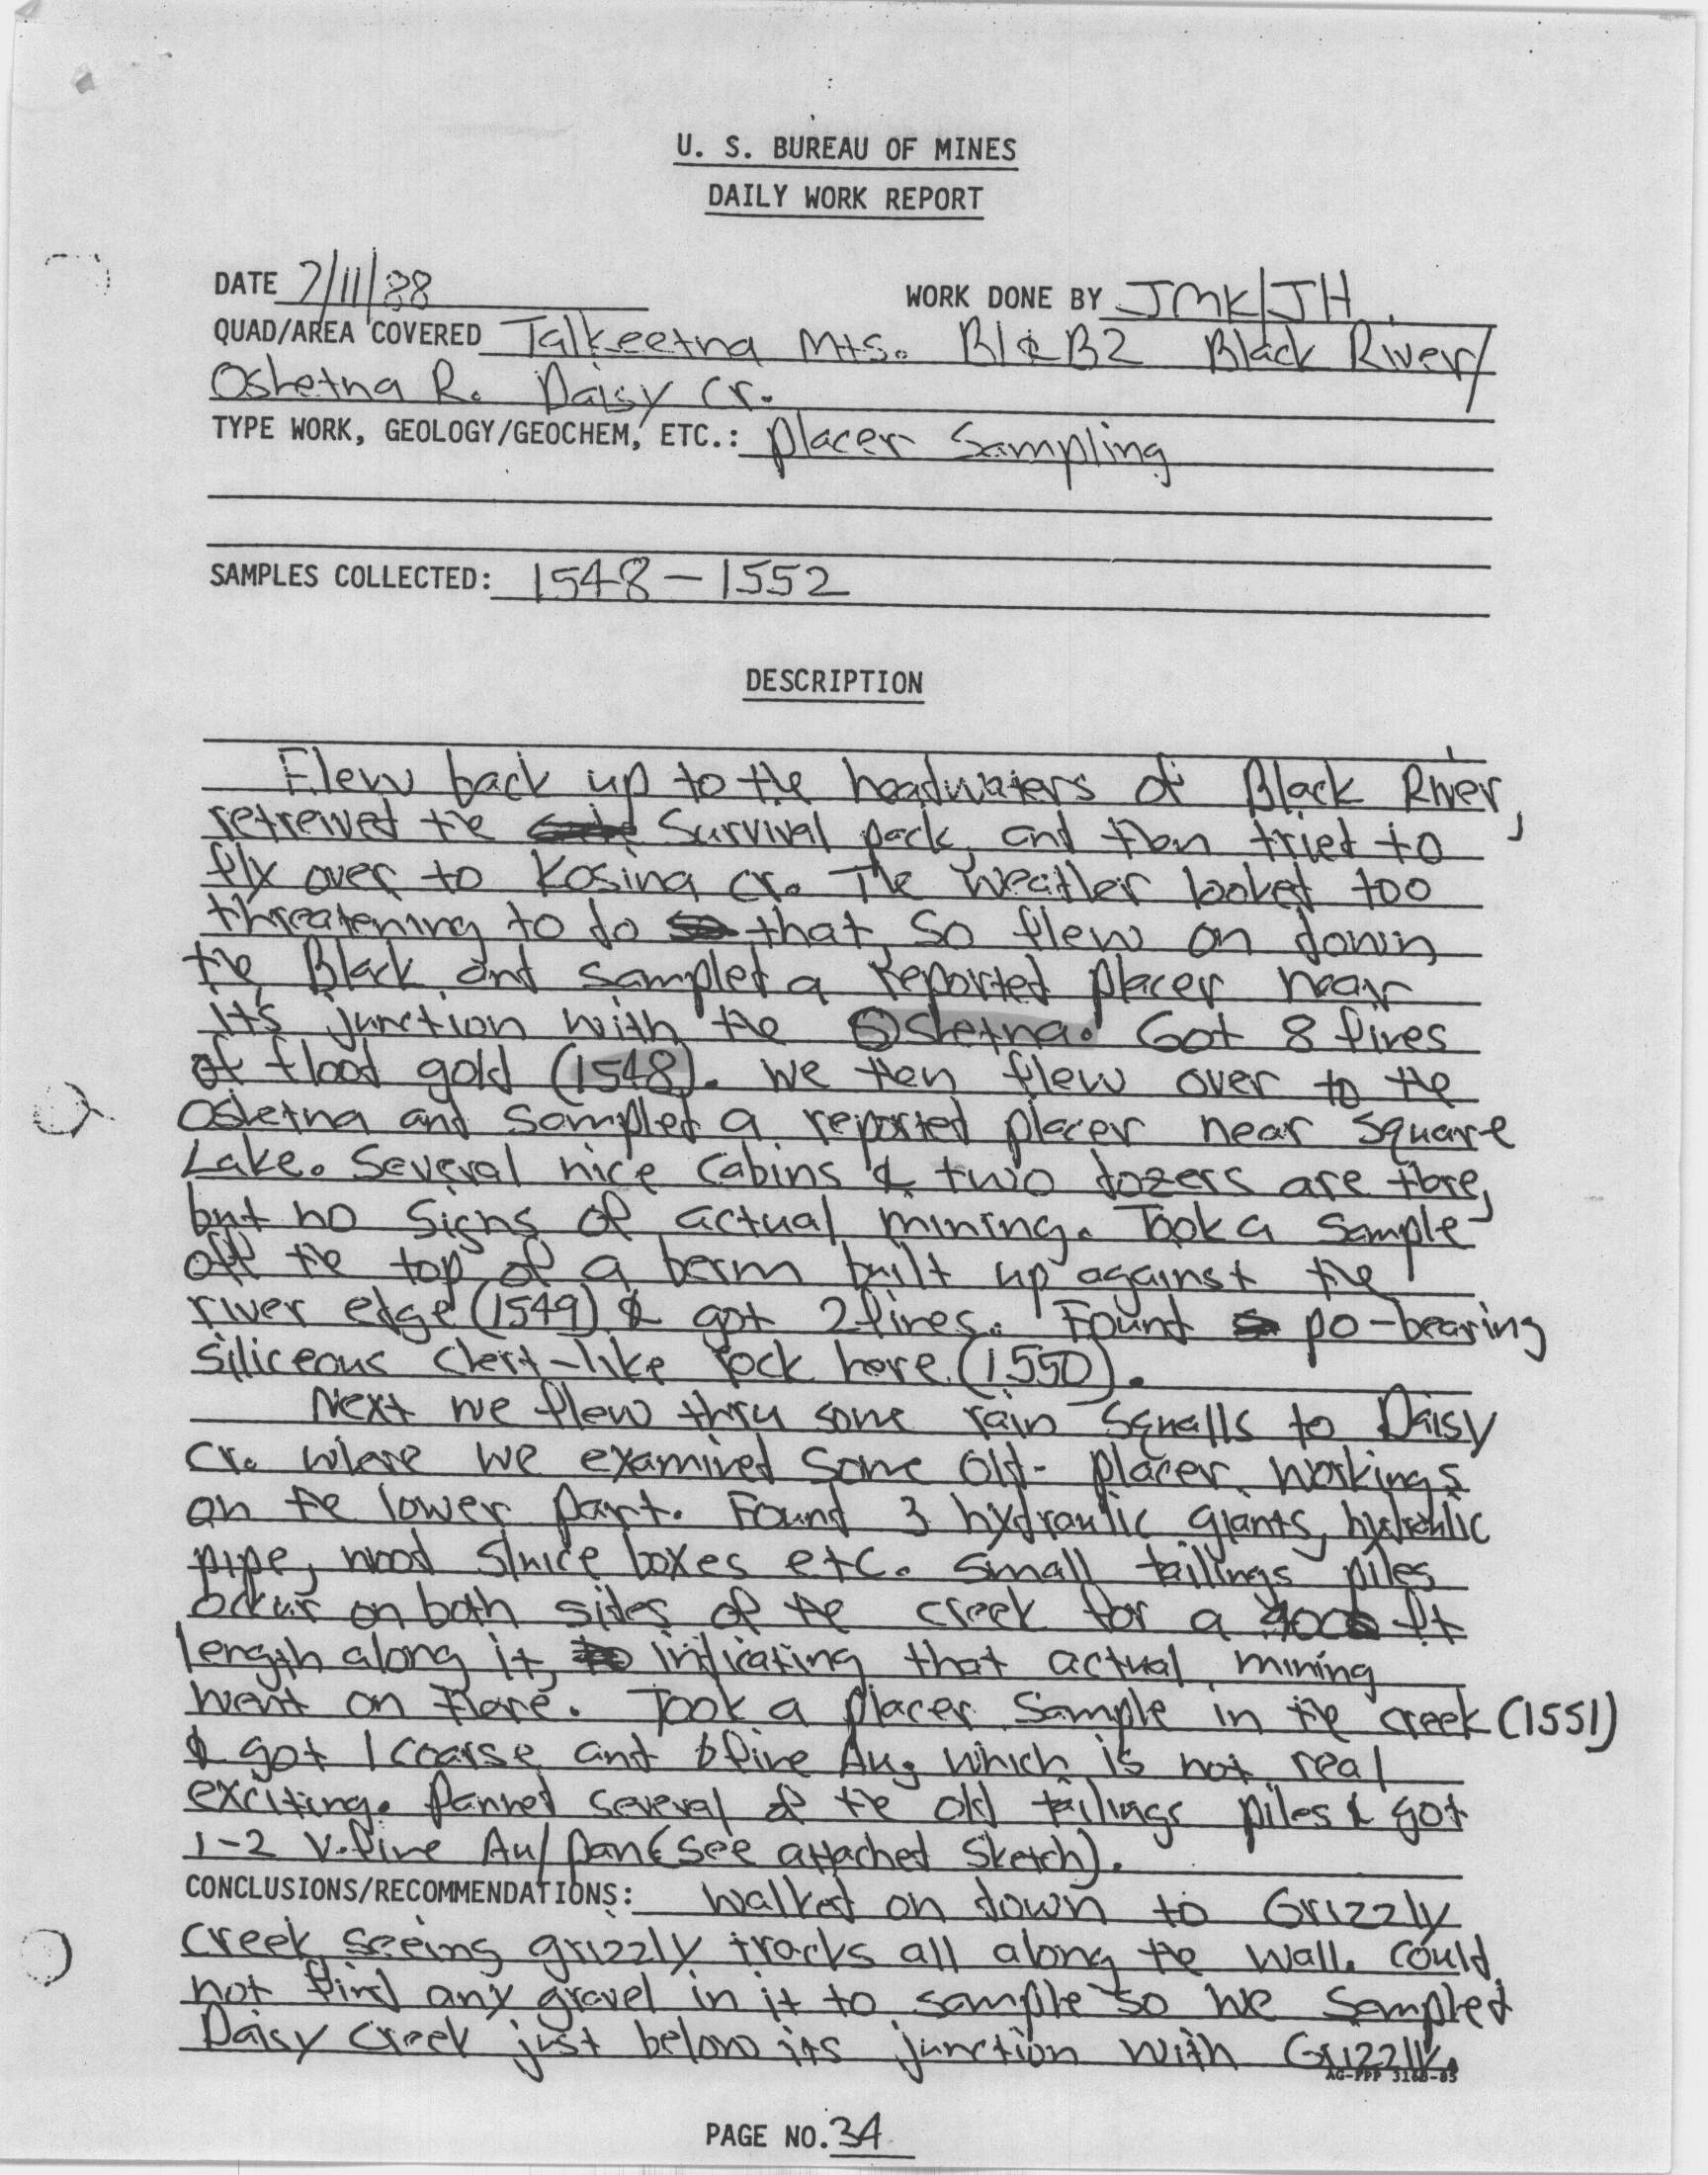 U. S. BUREAU OF MINES
DAILY WORK REPORT
DATE 7/11/88 WORK DONE BY JMK/JH.
QUAD/AREA COVERED Talkeetna Mts. B1 & B2 Black River/
Oshetna R. Daisy Cr.
TYPE WORK, GEOLOGY/GEOCHEM, ETC.: placer Sampling
SAMPLES COLLECTED: 1548 – 1552
DESCRIPTION
Flew back up to the headwaters of Black River,
retreived the Survival pack, and then tried to
fly over to Kosina cr. The weather looked too
threatening to do that, so flew on down
the Black and sampled a reported placer near
it's junction with the Oshetna. Got 8 fines
of flood gold (1548). We then flew over to the
Oshetna and sampled a reported placer near Square
Lake. Several nice cabins & two dozers are there,
but no signs of actual mining. Took a sample
off the top of a berm built up against the
river edge (1549) & got 2 fines. Found po-bearing
siliceous chert-like rock here (1550).
Next we flew thru some rain squalls to Daisy
Cr. where we examined some old- placer workings
on the lower part. Found 3 hydraulic giants, hydraulic
pipe, wood sluice boxes etc. Small tailings piles
occur on both sides of the creek for a ft
length along it, indicating that actual mining
went on there. Took a placer sample in the creek (1551)
& got 1 coarse and fine Au, which is not real
exciting. Panned several of the old tailings piles & got
1-2 v. fine Au/pan (see attached sketch).
CONCLUSIONS/RECOMMENDATIONS: Walked on down to Grizzly
Creek seeing grizzly tracks all along the walk. Could
not find any gravel in it to sample so we sampled
Daisy Creek just below its junction with Grizzly.
PAGE NO. 34